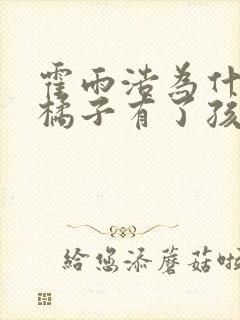 霍雨浩为什
橘子有了孩
给您添蘑菇啦